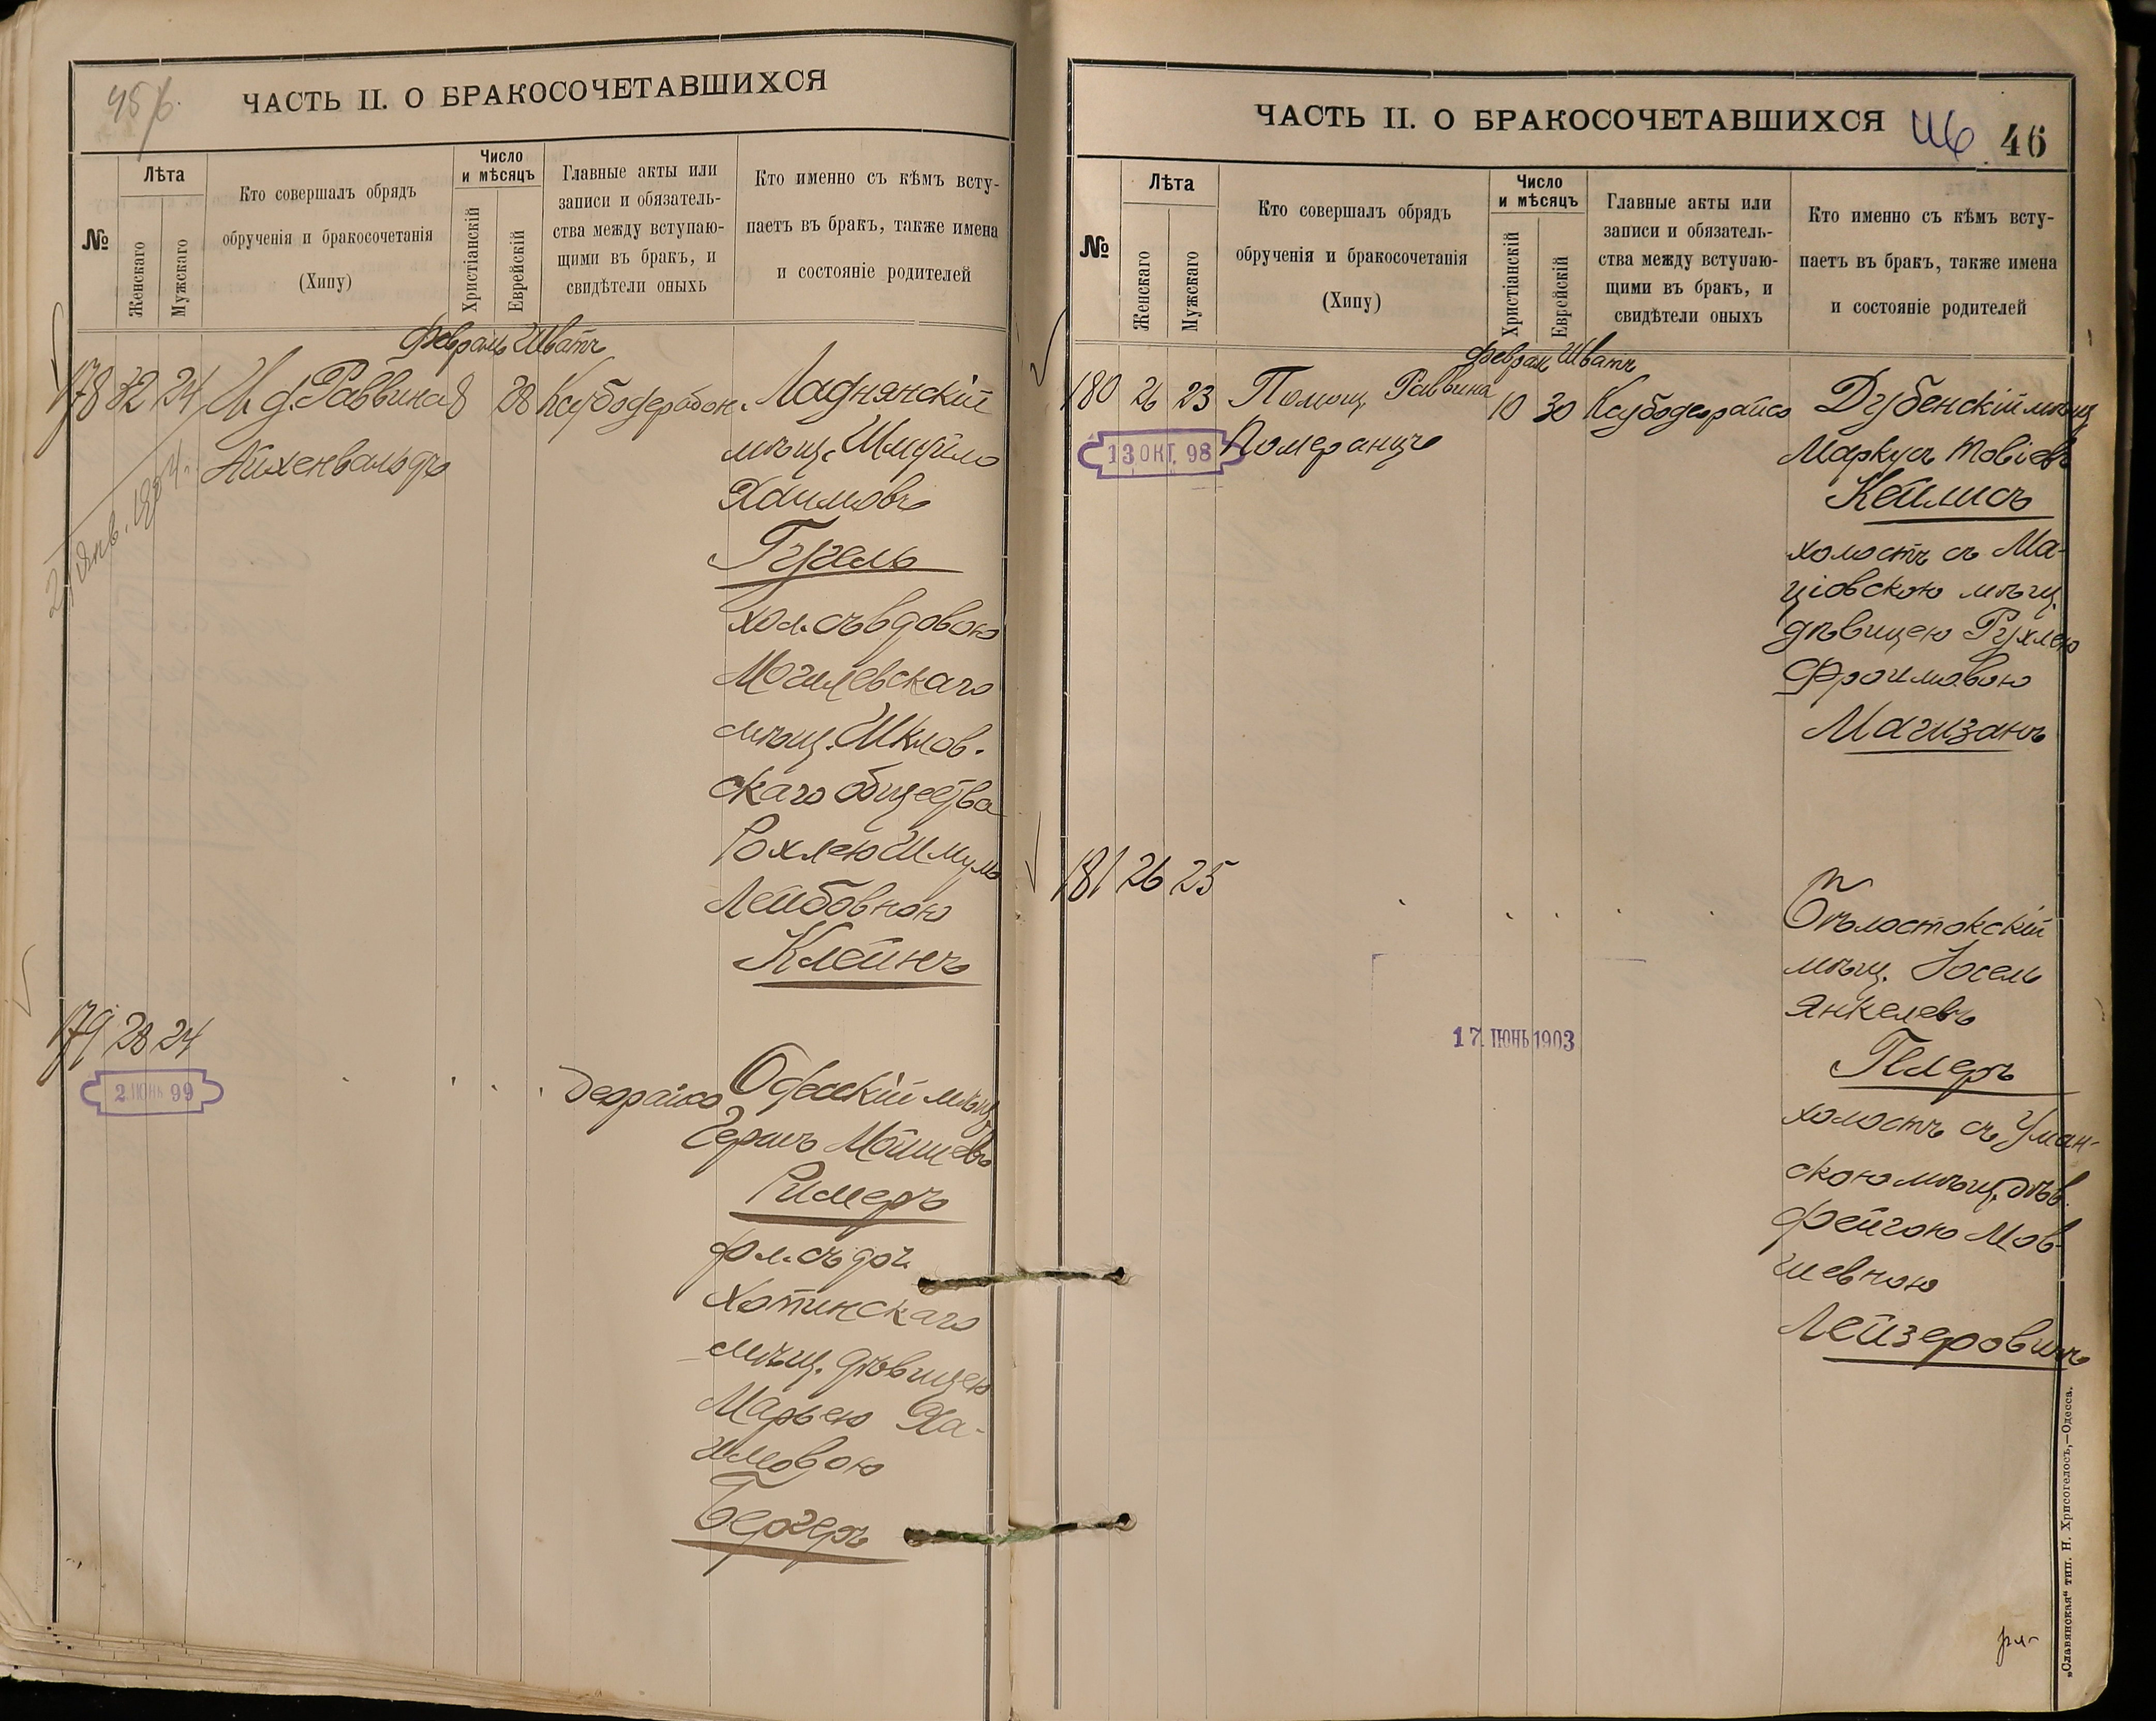 45/б.
ЧАСТЬ II. О БРАКОСОЧЕТАВШИХСЯ
№
Лѣта
Женскаго
Мужскаго
Кто совершалъ обрядъ
обрученія и бракосочетанія
(Хипу)
Число
и мѣсяцъ
Христіанскій
Еврейскій
Главные акты или
записи и обязатель-
ства между вступаю-
щими въ бракъ, и
свидѣтели оныхъ
Кто именно съ кѣмъ всту-
паетъ въ бракъ, также имена
и состояніе родителей
Февраль Шватъ
178 32 24 И. д. Раввина 8 28 Ксубодерабон.
Айхенвальдъ
Ладнянскій
мѣщ. Шмуйло
Хаимовъ
Гугель
хол. съ вдовою
Могилевскаго
мѣщ. Шклов-
скаго общества
Рохлею Шмуль
Лейбовною
Клейнъ
179 28 24
2 ИЮНЬ 99
Деорайсо
Одесскій мѣщ.
Герш Мошкевъ
Ример
съ доч.
Хотинскаго
мѣщ. дѣвицею
Марьею Ха-
имовою
Бергеръ
ЧАСТЬ II. О БРАКОСОЧЕТАВШИХСЯ
46
№
Лѣта
Женскаго
Мужскаго
Кто совершалъ обрядъ
обрученія и бракосочетанія
(Хипу)
Число
и мѣсяцъ
Христіанскій
Еврейскій
Главные акты или
записи и обязатель-
ства между вступаю-
щими въ бракъ, и
свидѣтели оныхъ
Кто именно съ кѣмъ всту-
паетъ въ бракъ, также имена
и состояніе родителей
Феврал Шватъ
180 26 23 Помощ. Раввина 10 30 Ксубодеорайсо
13 ОКТ. 98
Померанцъ
Дубенскій мѣщ
Маркусъ Товіевъ
Кейлисъ
холостъ съ Ма-
ціовскою мѣщ.
дѣвицею Рухлею
Фроимовою
Магизанъ
181 26 25
17 ИЮНЬ 1903
Бѣлостокскій
мѣщ. Іосель
Янкелевъ
холостъ съ Уман-
скою мѣщ. дѣв.
Фейгою Мов-
шевною
Лейзеровичъ
„Славянская“ тип. Н. Хрисогелосъ,—Одесса.